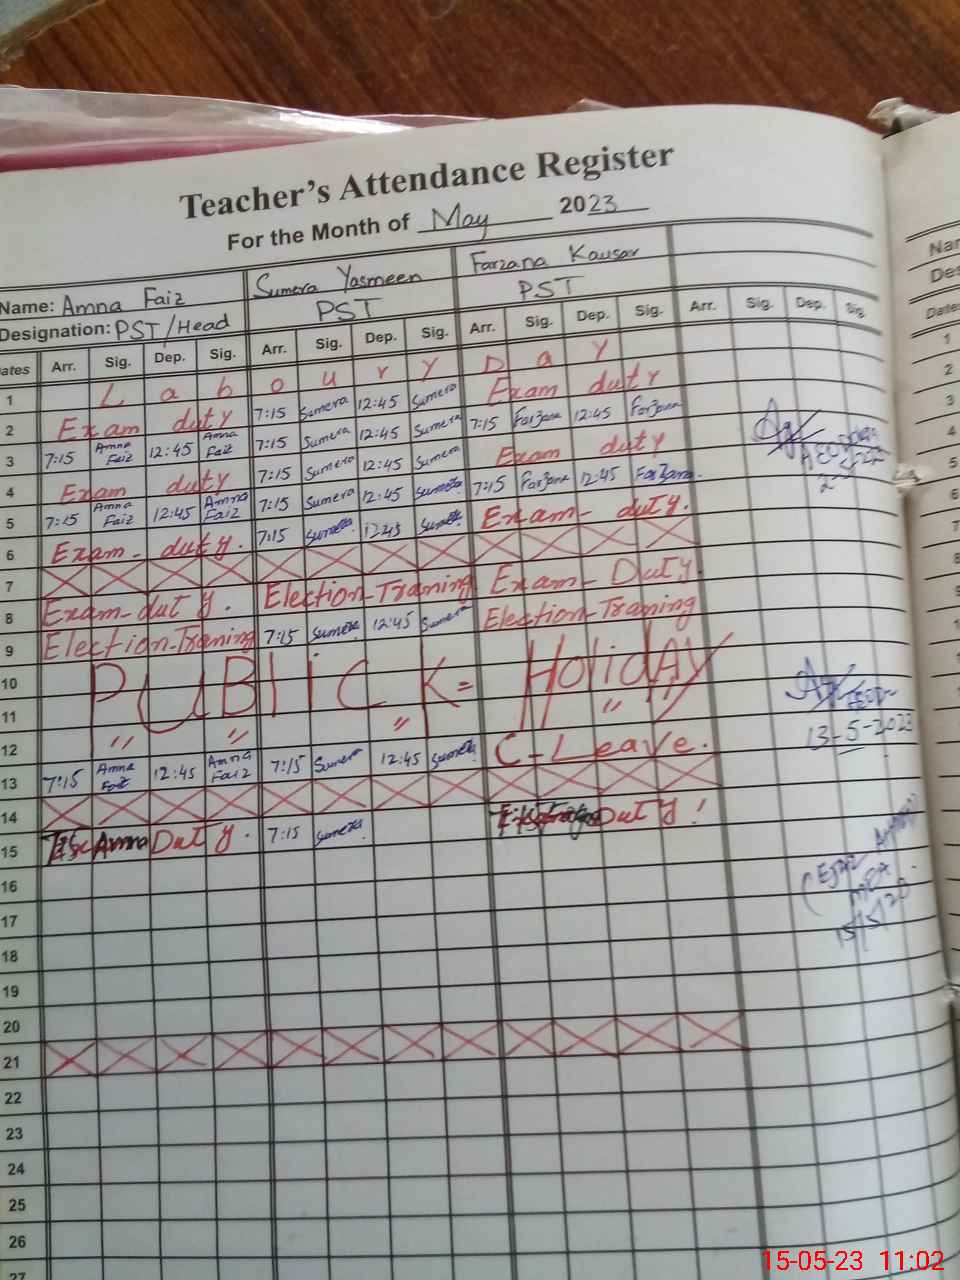 Teacher's Attendance Register
For the Month of May 2023
Name: Amna Faiz Sumera Yasmeen Farzana Kausar
Designation: PST/Head PST PST
Dates Arr. Sig. Dep. Sig. Arr. Sig. Dep. Sig. Arr. Sig. Dep. Sig. Arr. Sig. Dep. Sig.
1 L a b o u r y D a y
2 Exam duty 7:15 Sumera 12:45 Sumera Exam duty
3 7:15 Amna Faiz 12:45 Amna Faiz 7:15 Sumera 12:45 Sumera 7:15 Farzana 12:45 Farzana
4 Exam duty 7:15 Sumera 12:45 Sumera Exam duty
5 7:15 Amna Faiz 12:45 Amna Faiz 7:15 Sumera 12:45 Sumera 7:15 Farzana 12:45 Farzana.
6 Exam- duty. 7:15 Sumera 12:45 Sumera Exam- duty.
7
8 Exam-duty. Election-Traning Exam-Duty.
9 Election-Traning 7:15 Sumera 12:45 Sumera Election-Traning
10 PUBlICK= HoliDAY
11 " "
12 " " C-Leave.
13 7:15 Amna Faiz 12:45 Amna Faiz 7:15 Sumera 12:45 Sumera
13-5-2023
14
15 Amna Duty. 7:15 Sumera Duty!
16
MEA
17
15/5/20
18
19
20
21
22
23
24
25
26
27
Name
Des
Dates
1
2
3
4
5
6
7
8
9
15-05-23 11:02